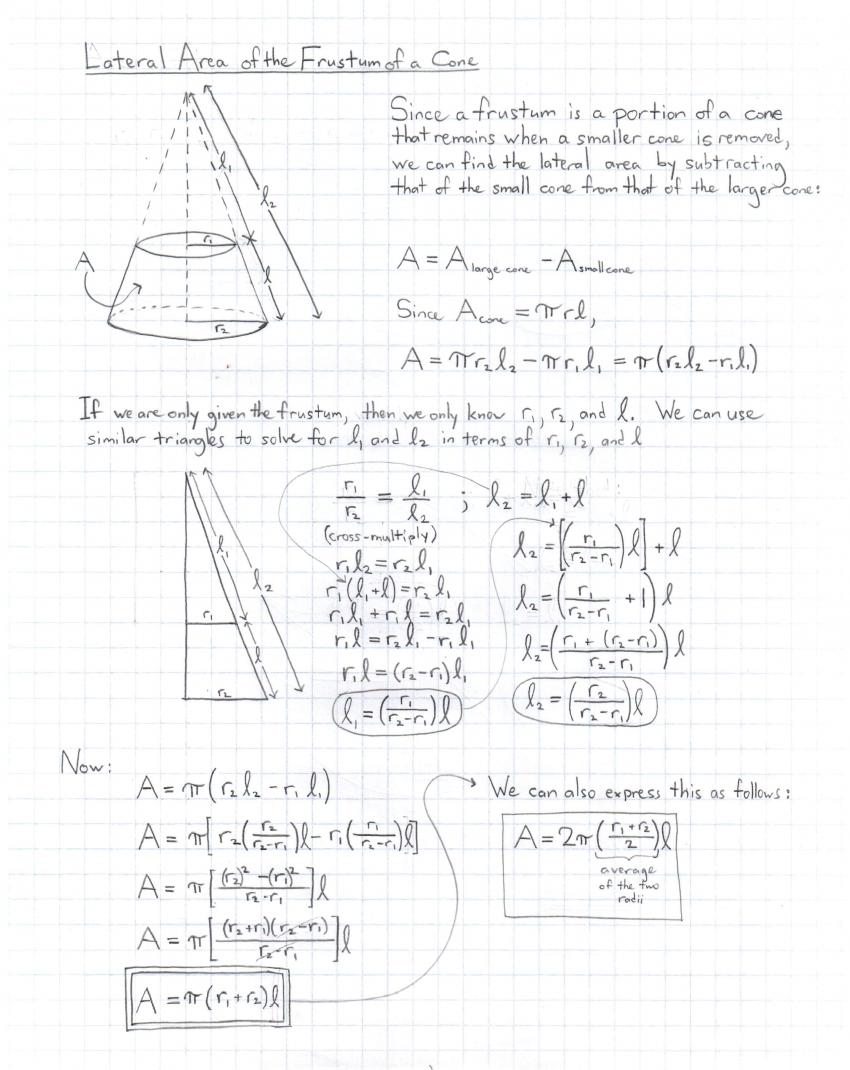 Lateral Area of the Frustum of a Cone
Since a frustum is a portion of a cone
that remains when a smaller cone is removed,
we can find the lateral area by subtracting
that of the small cone from that of the larger cone:
l₁
l₂
r₁
l
A
r₂
A = A large cone - A small cone
Since A cone = πrl,
A = πr₂l₂ - πr₁l₁ = π(r₂l₂ - r₁l₁)
If we are only given the frustum, then we only know r₁, r₂, and l. We can use
similar triangles to solve for l₁ and l₂ in terms of r₁, r₂, and l
l₁
l₂
r₁
l
r₂
r₁/r₂ = l₁/l₂ ; l₂ = l₁ + l
(cross-multiply)
r₁l₂ = r₂l₁
r₁(l₁+l) = r₂l₁
r₁l₁ + r₁l = r₂l₁
r₁l = r₂l₁ - r₁l₁
r₁l = (r₂-r₁)l₁
l₁ = (r₁/(r₂-r₁))l
l₂ = [(r₁/(r₂-r₁))l] + l
l₂ = (r₁/(r₂-r₁) + 1)l
l₂ = ((r₁ + (r₂-r₁))/(r₂-r₁))l
l₂ = (r₂/(r₂-r₁))l
Now:
A = π(r₂l₂ - r₁l₁)
A = π[r₂(r₂/(r₂-r₁))l - r₁(r₁/(r₂-r₁))l]
A = π[((r₂)² - (r₁)²)/(r₂-r₁)]l
A = π[((r₂+r₁)(r₂-r₁))/(r₂-r₁)]l
A = π(r₁+r₂)l
We can also express this as follows:
A = 2π((r₁+r₂)/2)l
average
of the two
radii